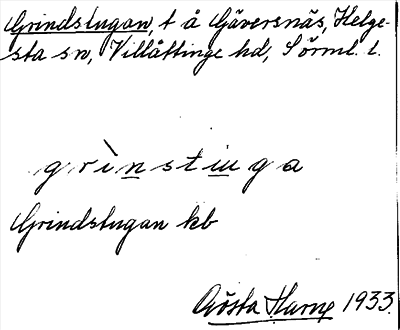 Grindstugan, t å Gäversnäs, Helge-
sta sn, Villåttinge hd, Sörml. l.
grìnstuga
Grindstugan kb
Gösta Harne 1933.